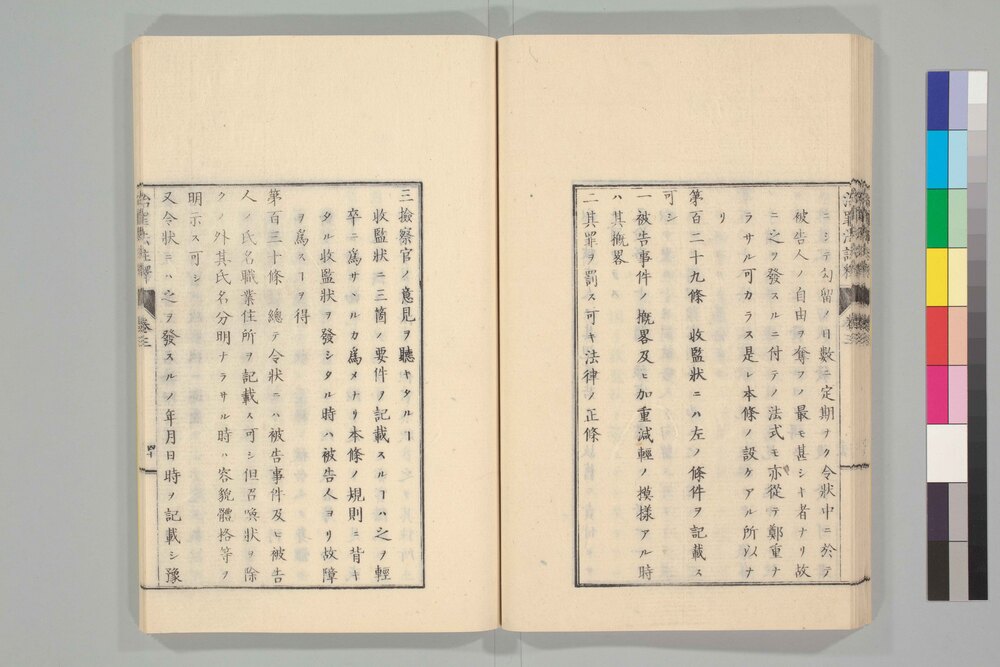 ニシテ勾留ノ日數ニ定期ナク令狀中ニ於テ
被告人ノ自由ヲ奪フノ最モ甚シキ者ナリ故
ニ之ヲ發スルニ付テノ法式モ亦從テ鄭重ナ
ラサル可カラス是レ本條ノ設ケアル所以ナ
リ
第百二十九條 收監狀ニハ左ノ條件ヲ記載ス
可シ
一被告事件ノ槪畧及ヒ加重減輕ノ摸樣アル時
ハ其槪畧
二其罪ヲ罰ス可キ法律ノ正條
三撿察官ノ意見ヲ聽キタルヿ
收監狀ニ三箇ノ要件ヲ記載スルヿハ之ヲ輕
卒ニ爲サヽルカ爲メナリ本條ノ規則ニ背キ
タル收監狀ヲ發シタル時ハ被告人ヨリ故障
ヲ爲スヿヲ得
第百三十條 總テ令狀ニハ被告事件及ヒ被告
人ノ氏名職業住所ヲ記載ス可シ但召喚狀ヲ除
クノ外其氏名分明ナラサル時ハ容貌體格等ヲ
明示ス可シ
又令狀ニハ之ヲ發スルノ年月日時ヲ記載シ豫
治罪法註釋 卷三